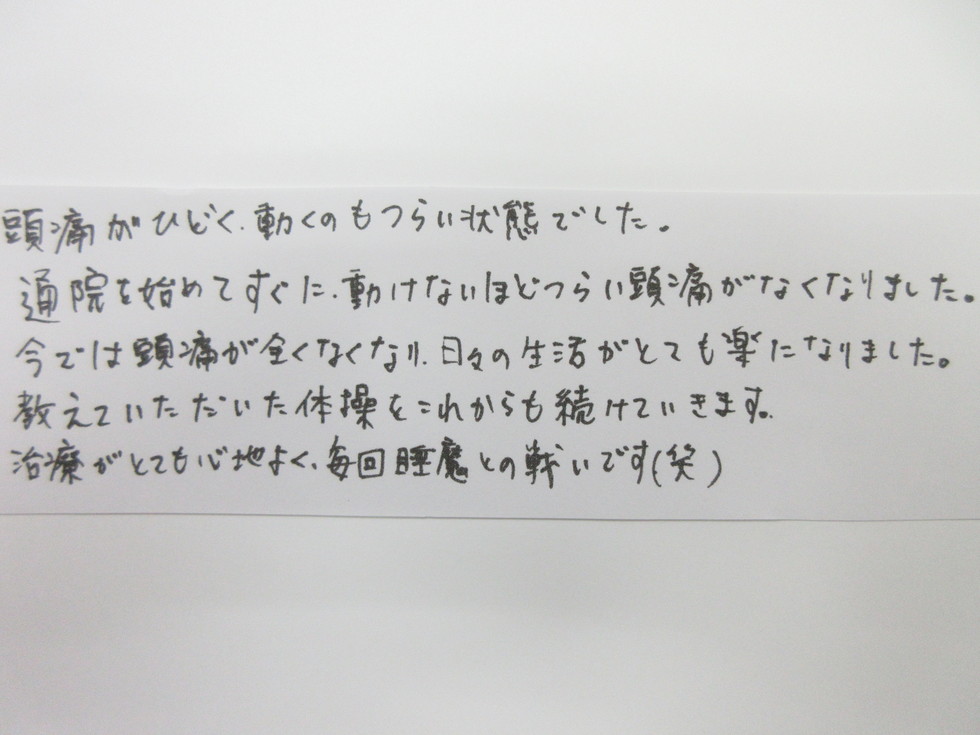 頭痛がひどく、動くのもつらい状態でした。
通院を始めてすぐに、動けないほどつらい頭痛がなくなりました。
今では頭痛が全くなくなり、日々の生活がとても楽になりました。
教えていただいた体操をこれからも続けていきます。
治療がとても心地よく、毎回睡魔との戦いです(笑)